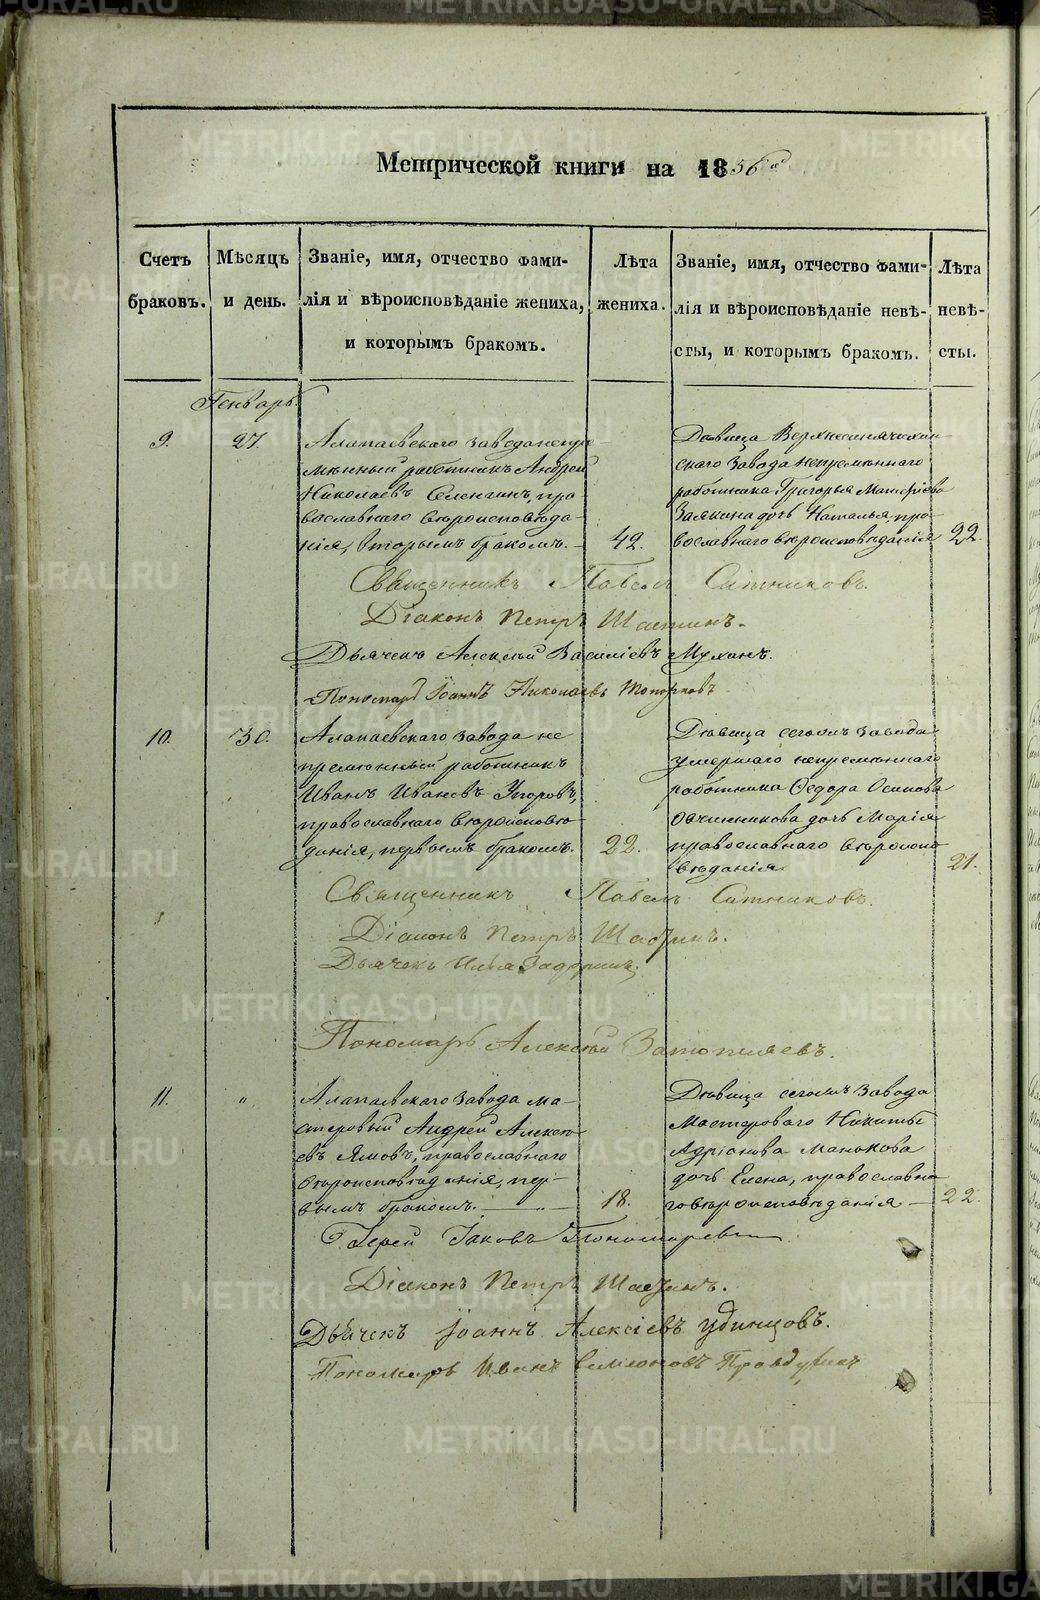 Метрической книги на 1856й
Счетъ браковъ.
Мѣсяцъ и день.
Званіе, имя, отчество фами-
лія и вѣроисповѣданіе жениха,
и которымъ бракомъ.
Лѣта жениха.
Званіе, имя, отчество фами-
лія и вѣроисповѣданіе невѣ-
сты, и которымъ бракомъ.
Лѣта невѣ-
сты.
Генварь.
9.
27
Алапаевскаго завода непре-
мѣнный работникъ Андрей
Николаевъ Селенгинъ, пра
вославнаго вѣроисповѣда
нія, вторымъ бракомъ.
42.
Дѣвица Верхнесинячихин-
скаго завода непремѣннаго
работника Григорья Матфіева
Заякина дочь Наталья, пра-
вославнаго вѣроисповѣданія
22.
Священникъ Павелъ Ситниковъ.
Діаконъ Петръ
Дьячекъ Алексѣй Василіевъ Мухинъ.
Пономарь Іоаннъ Николаевъ Топорковъ
10.
30.
Алапаевскаго завода не
премѣнный работникъ
Иванъ Ивановъ Упоровъ,
православнаго вѣроисповѣ
данія, первымъ бракомъ.
22.
Дѣвица сегожъ завода
умершаго непремѣннаго
работника Ѳедора Осипова
Овчинникова дочь Марія
православнаго вѣроиспо
вѣданія
21.
Священникъ Павелъ Ситниковъ.
Діаконъ Петръ
Дьячекъ Илья
Пономарь Алексѣй Затопляевъ.
11.
"
Алапаевскаго завода ма-
стеровый Андрей Алексѣ-
евъ Ямовъ, православнаго
вѣроисповѣданія, пер-
вымъ бракомъ.
18.
Дѣвица сегожъ завода
мастероваго Никиты
Адріанова Манькова
дочь Елена, православна
го вѣроисповѣданія
22.
Іерей Іаковъ Пономаревъ
Діаконъ Петръ
Дьячекъ Іоаннъ Алексіевъ Удинцовъ.
Пономарь Иванъ Семеновъ
METRIKI.GASO-URAL.RU